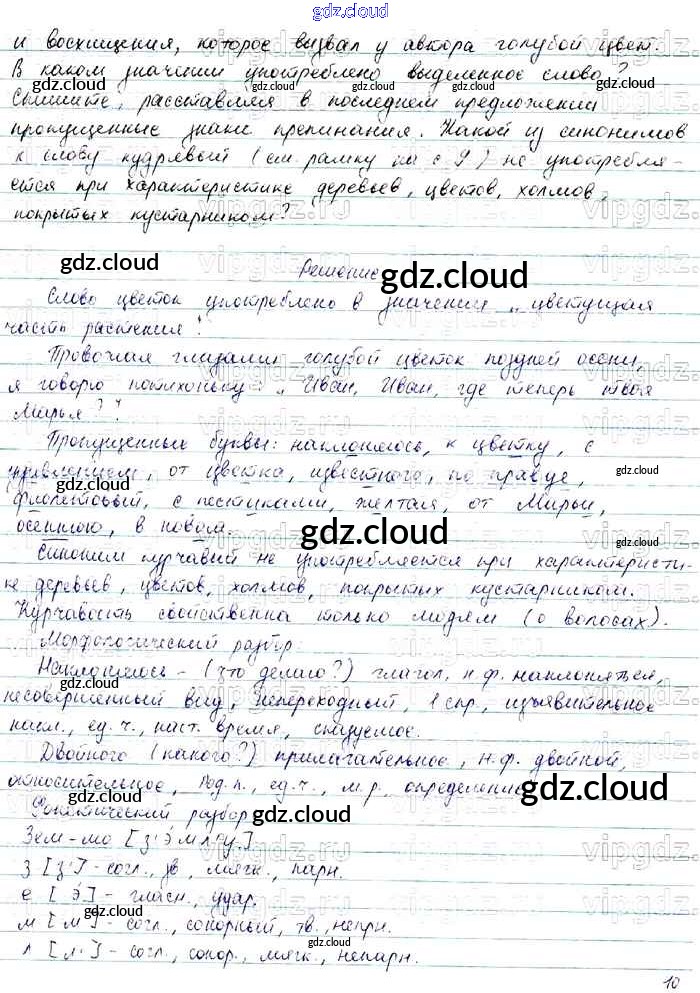 gdz.cloud
и восхищения, которое вызвал у автора голубой цвет.
В каком значении употреблено выделенное слово?
Спишите, расставляя в последнем предложении
пропущенные знаки препинания. Какой из синонимов
к слову кудрявый (см. рамку на с 9) не употребля-
ется при характеристике деревьев, цветов, холмов,
покрытых кустарником?
Решение
Слово цветок употреблено в значении „цветущая
часть растения".
Провожая глазами голубой цветок поздней осени,
я говорю потихоньку: „Иван, Иван, где теперь твоя
Марья?"
Пропущенные буквы: наклоняюсь, к цветку, с
от цветка, известного, по правде,
фиолетовый, с пестиками, желтая, от Марьи,
осеннюю, в новом.
Синоним курчавый не употребляется при характеристи-
ке деревьев, цветов, холмов, покрытых кустарником.
Курчавость свойственна только людям (о волосах).
Морфологический разбор:
Наклоняюсь - (что делаю?) глагол, н.ф. наклоняться,
несовершенный вид, непереходный, 1 спр., изъявительное
накл., ед.ч., наст. время, сказуемое.
Двойного (какого?) прилагательное, н.ф. двойной,
относительное, Род.п., ед.ч., м.р., определение
Фонетический разбор
[з'
з [з'] - согл., зв, мягк., парн.
е [э́] - гласн., удар.
м [м] - согл., сонорный, тв., непрн.
л [л'] - согл., сонор., мягк., непарн.
10
gdz.cloud
vipgdz.ru